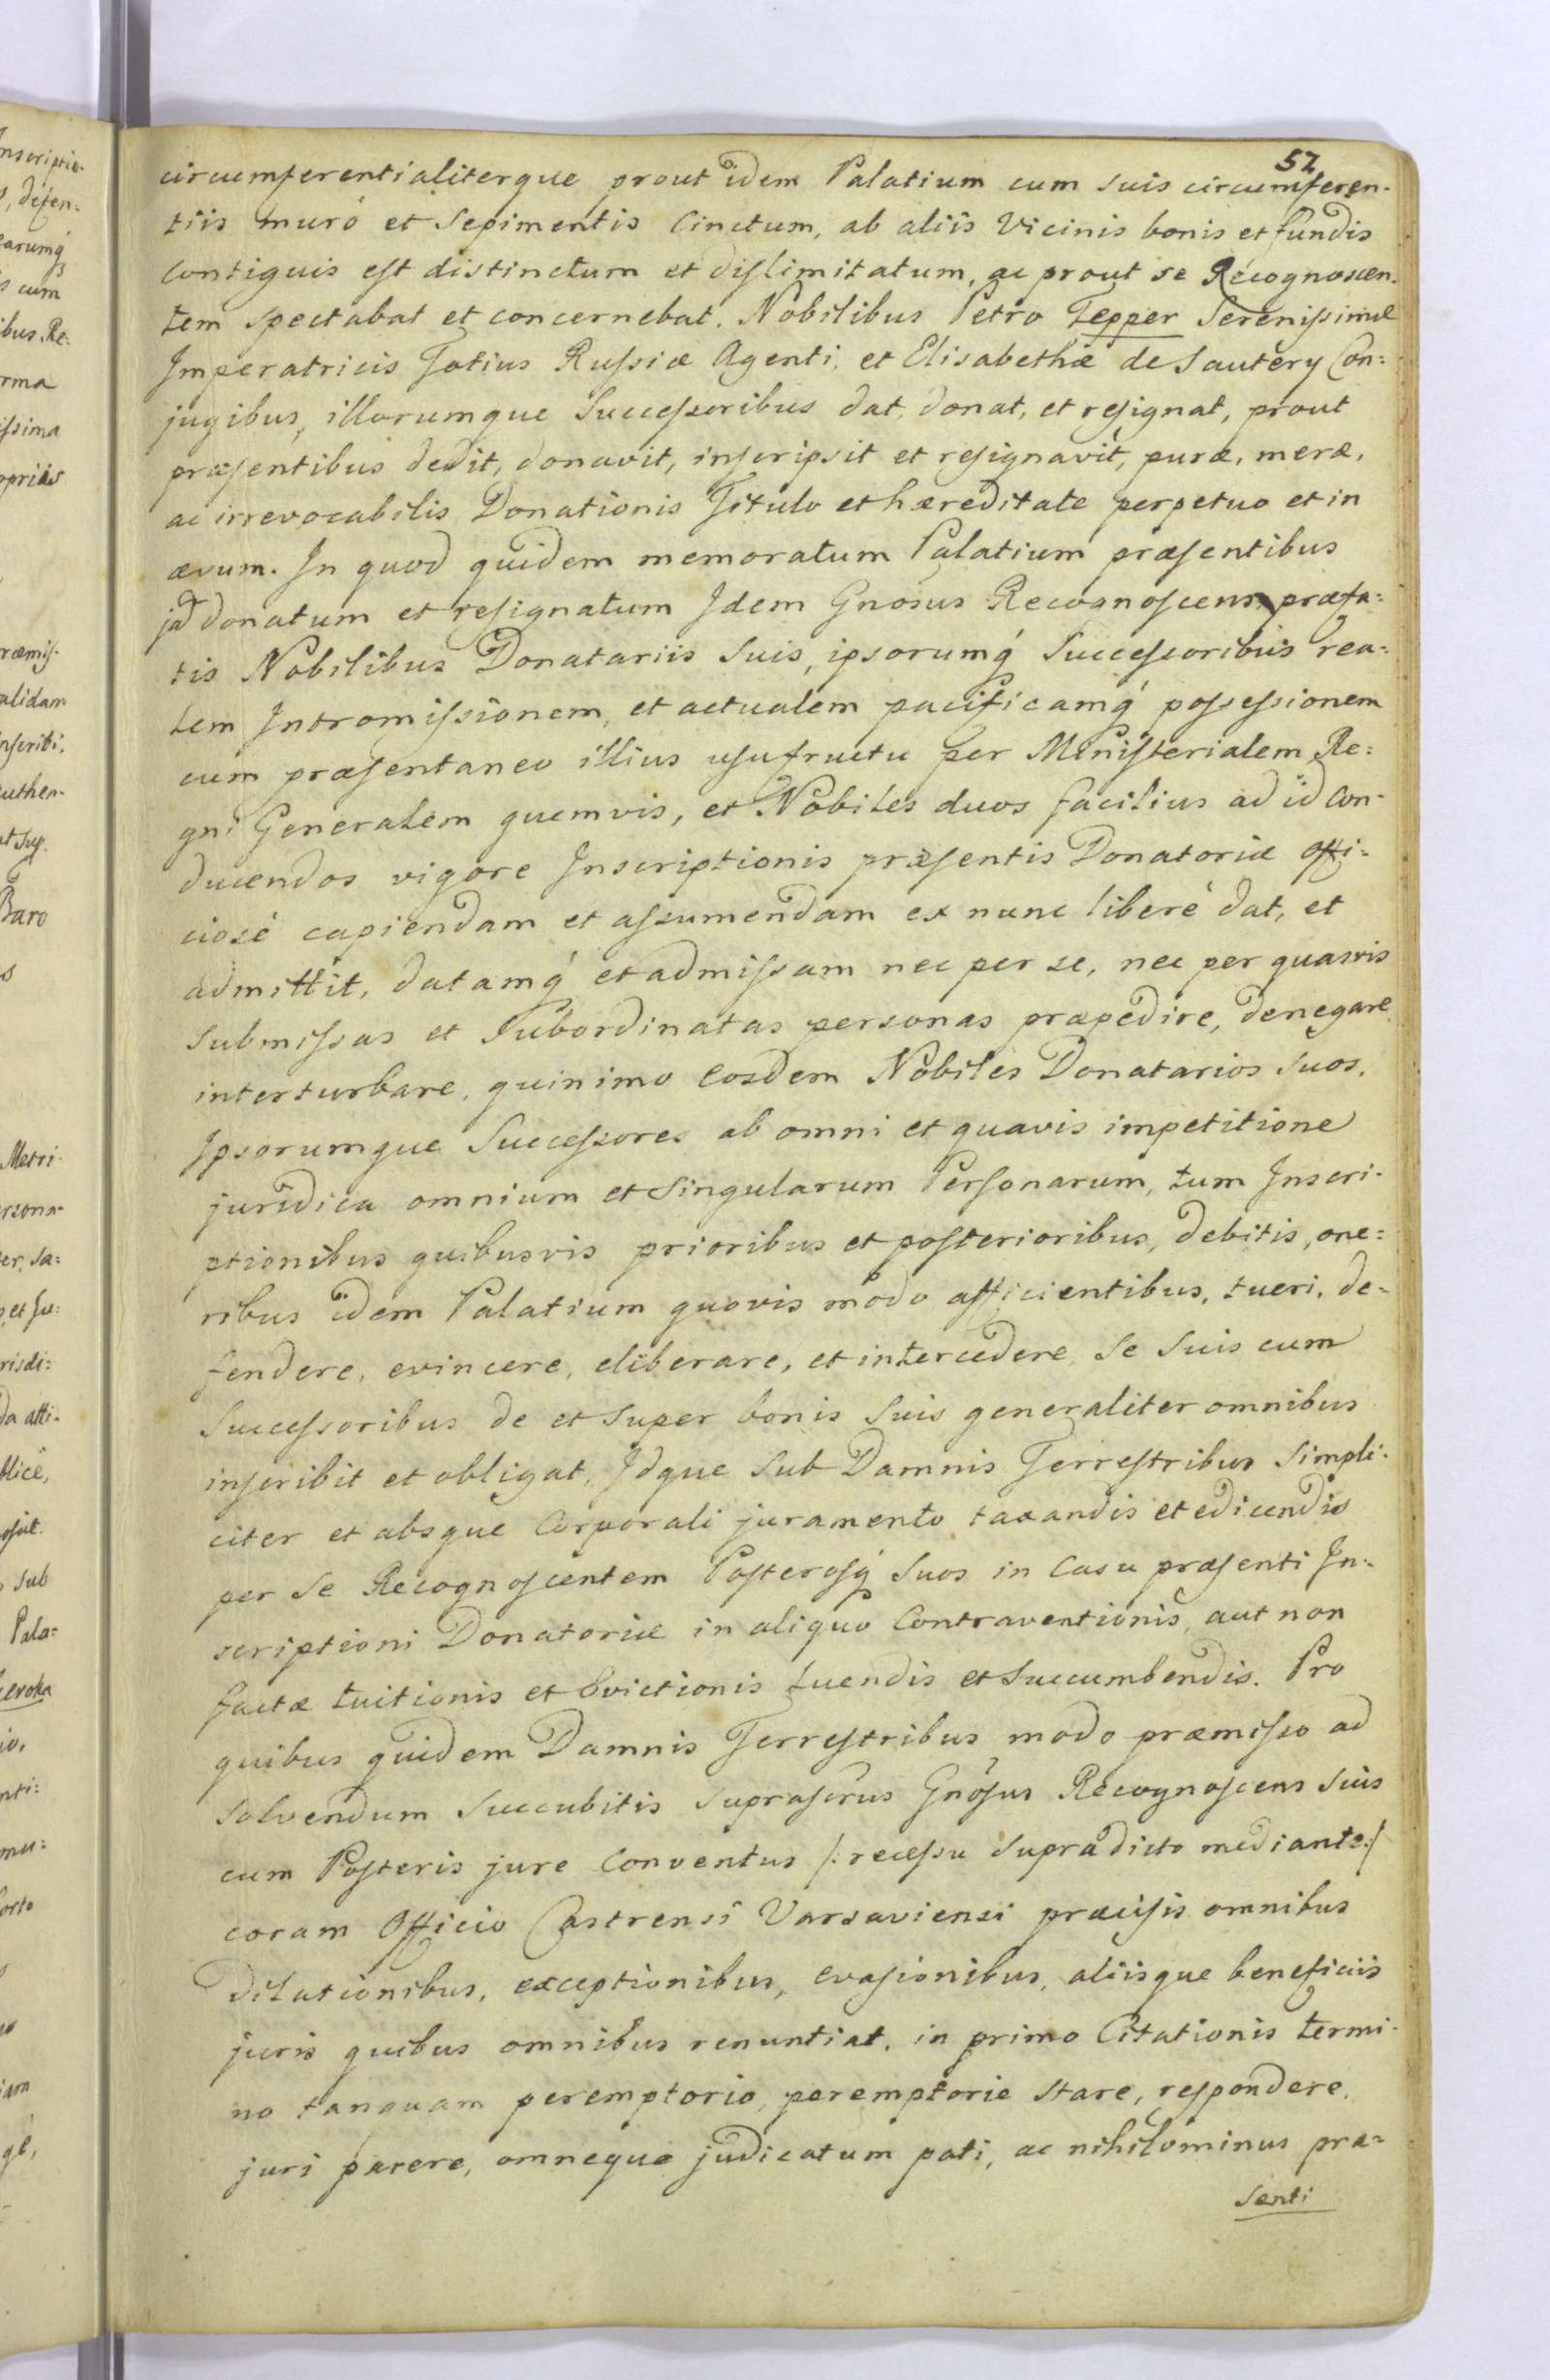 52
circumferentialiterque prout idem Palatium cum suis circumferen-
tiis muro et Sepimentis Cinctum, ab aliis Vicinis bonis et fundis
Contiguis est distinctum et dislimitatum, ac prout se Recognoscen-
tem spectabat et concernebat. Nobilibus Petro Tepper Serenissimæ
Imperatricis Totius Russiæ Agenti, et Elisabethæ de Sautery Con=
jugibus, illorumque Successoribus dat, donat, et resignat, prout
præsentibus dedit, donavit, inscripsit et resignavit, puræ, meræ,
ac irrevocabilis Donationis Titulo et hæreditate perpetuo et in
ævum. In quod quidem memoratum Palatium præsentibus
jã donatum et resignatum Idem Gnosus Recognoscens præfa=
tis Nobilibus Donatariis Suis, ipsorumq́ Successoribus rea=
lem Intromissionem, et actualem pacificamq́ possessionem
cum præsentaneo illius usufructu per Ministerialem Re=
gni Generalem quemvis, et Nobiles duos facilius ad id Con-
ducendos vigore Inscriptionis præsentis Donatoriæ offi=
ciosé capiendam et assumendam ex nunc liberé dat, et
admittit, datamq́ et admissam nec per se, nec per quasvis
Submissas et Subordinatas personas præpedire, denegare
interturbare, quinimo Eosdem Nobiles Donatarios Suos,
Ipsorumque Successores ab omni et quavis impetitione
juridica omnium et Singularum Personarum, tum Inscri-
ptionibus quibusvis prioribus et posterioribus, debitis, one=
ribus idem Palatium quovis modo afficientibus, tueri, de=
fendere, evincere, eliberare, et intercedere Se Suis cum
Successoribus de et Super bonis Suis generaliter omnibus
inscribit et obligat, Idque Sub Damnis Terrestribus Simpli-
citer et absque Corporali juramento taxandis et edicendis
per Se Recognoscentem Posterosq́ Suos in Casu præsenti In-
scriptioni Donatoriæ in aliquo Contraventionis, aut non
factæ tuitionis et Evictionis luendis et Succumbendis. Pro
quibus quidem Damnis Terrestribus modo præmisso ad
Solvendum Succubitis Suprascrus Gnosus Recognoscens Suis
cum Posteris jure Conventus /: recessu Supradicto mediante :/
coram Officio Castrensi Varsaviensi præcisis omnibus
Dilationibus, exceptionibus, evasionibus, aliisque beneficiis
juris quibus omnibus renuntiat, in primo Citationis termi-
no tanquam peremptorio, peremptorie Stare, respondere,
juri parere, omneque judicatum pati, ac nihilominus præ=
senti